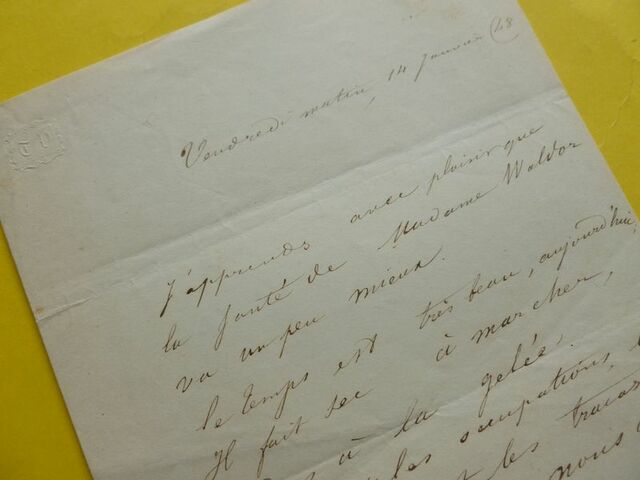 Vendredi matin, 14 Janvier (48
J'apprends avec plaisir que
la santé de Madame Waldor
va un peu mieux.
le temps est très beau, aujourd'hui,
Il fait sec à marcher,
à la gelée.
les occupations,
les tracas
nous